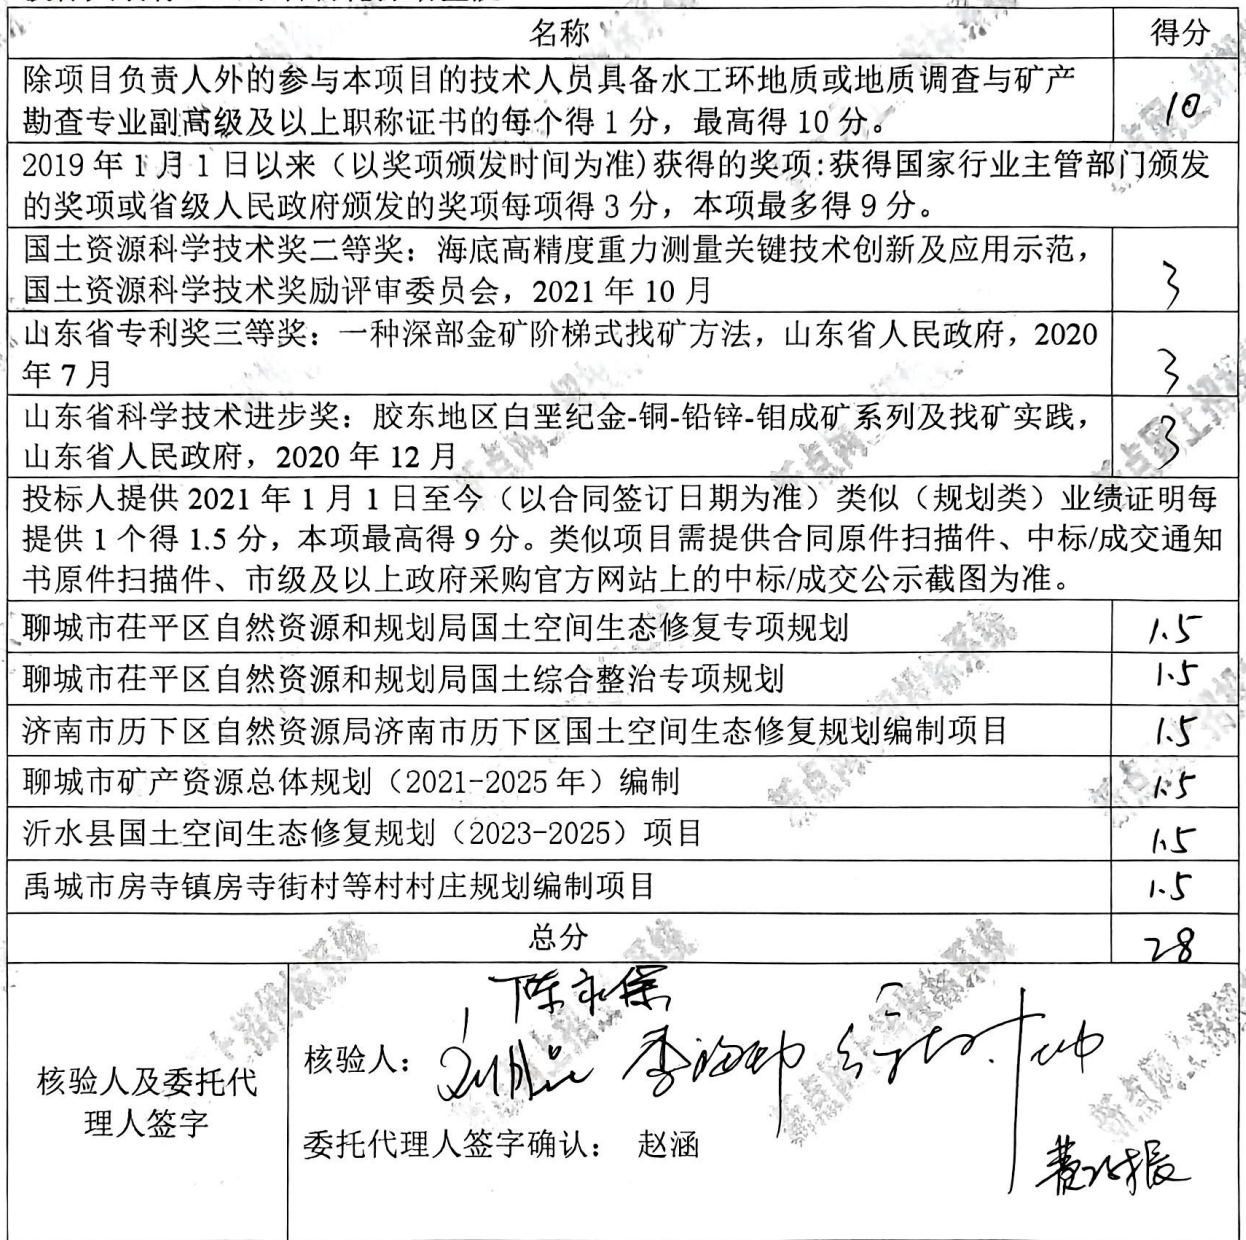 名称 得分
除项目负责人外的参与本项目的技术人员具备水工环地质或地质调查与矿产
勘查专业副高级及以上职称证书的每个得 1 分，最高得 10 分。 10
2019 年 1 月 1 日以来（以奖项颁发时间为准)获得的奖项:获得国家行业主管部门颁发
的奖项或省级人民政府颁发的奖项每项得 3 分，本项最多得 9 分。
国土资源科学技术奖二等奖：海底高精度重力测量关键技术创新及应用示范，
国土资源科学技术奖励评审委员会，2021 年 10 月 3
山东省专利奖三等奖：一种深部金矿阶梯式找矿方法，山东省人民政府，2020
年 7 月 3
山东省科学技术进步奖：胶东地区白垩纪金-铜-铅锌-钼成矿系列及找矿实践，
山东省人民政府，2020 年 12 月 3
投标人提供 2021 年 1 月 1 日至今（以合同签订日期为准）类似（规划类）业绩证明每
提供 1 个得 1.5 分，本项最高得 9 分。类似项目需提供合同原件扫描件、中标/成交通知
书原件扫描件、市级及以上政府采购官方网站上的中标/成交公示截图为准。
聊城市茌平区自然资源和规划局国土空间生态修复专项规划 1.5
聊城市茌平区自然资源和规划局国土综合整治专项规划 1.5
济南市历下区自然资源局济南市历下区国土空间生态修复规划编制项目 1.5
聊城市矿产资源总体规划（2021-2025 年）编制 1.5
沂水县国土空间生态修复规划（2023-2025）项目 1.5
禹城市房寺镇房寺街村等村村庄规划编制项目 1.5
总分 28
陈永保
核验人：
核验人及委托代
理人签字
委托代理人签字确认： 赵涵